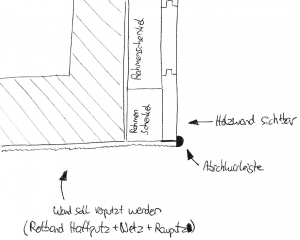 Rahmenschenkel
Rahmen
Schenkel
Holzwand sichtbar
Abschlussleiste
Wand soll verputzt werden
(Rotband Haftputz + Netz + Rauputz)